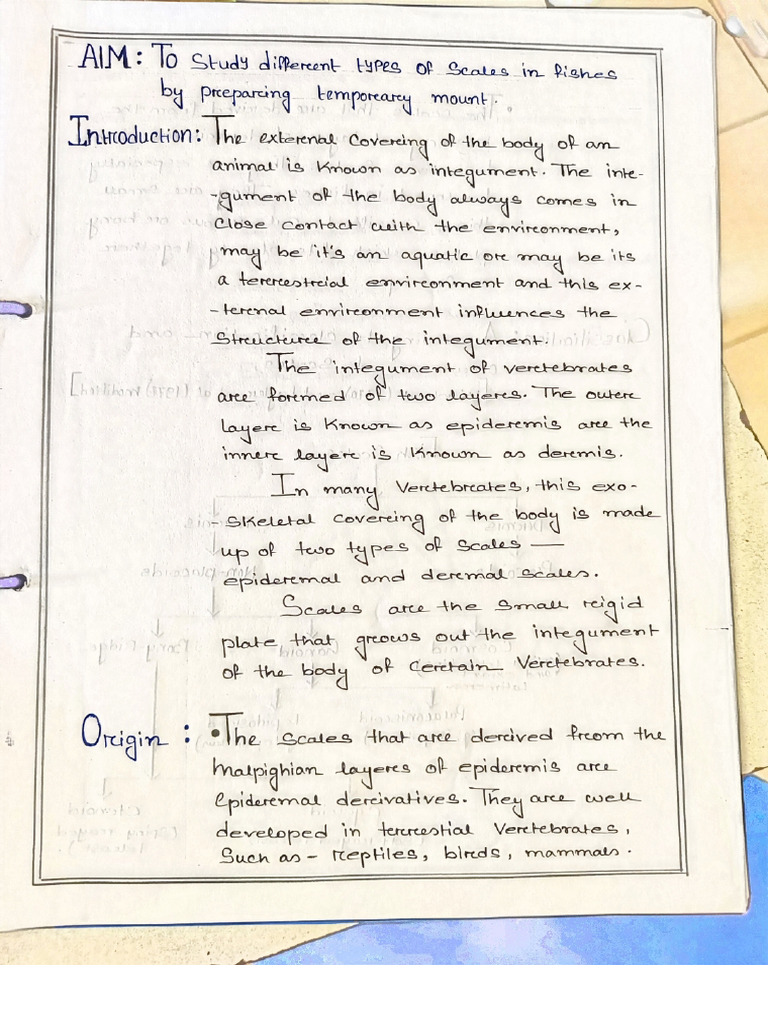 AIM: To Study different types of Scales in fishes
by preparing temporary mount.
Introduction: The external Covering of the body of an
animal is Known as integument. The inte-
-gument of the body always comes in
Close contact with the environment,
may be it's an aquatic or may be its
a terrestrial environment and this ex-
-ternal environment influences the
Structure of the integument.
The integument of vertebrates
are formed of two layers. The outer
layer is Known as epidermis are the
inner layer is Known as dermis.
In many Vertebrates, this exo-
-skeletal covering of the body is made
up of two types of Scales —
epidermal and dermal scales.
Scales are the small rigid
plate that grows out the integument
of the body of Certain Vertebrates.
Origin: • The Scales that are derived from the
Malpighian layers of epidermis are
Epidermal derivatives. They are well
developed in terrestial Vertebrates,
Such as - reptiles, birds, mammals.